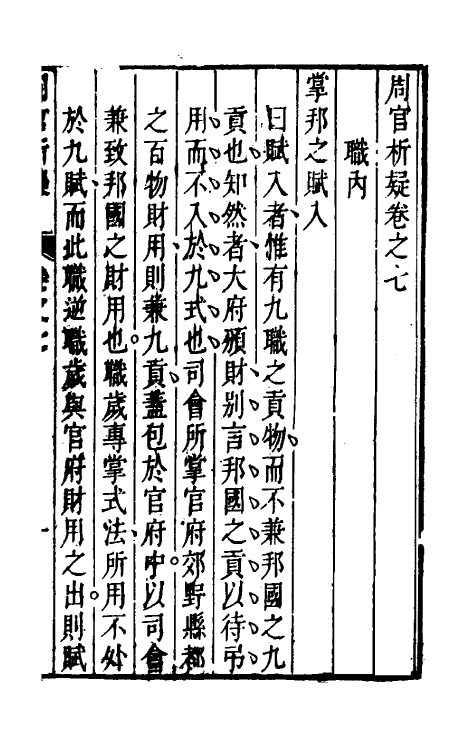 周官析疑卷之七
職內
掌邦之賦入
曰賦入者惟有九職之貢物而不兼邦國之九
貢也知然者大府頒財别言邦國之貢以待弔
用而不入於九式也司會所掌官府郊野縣都
之百物財用則兼九貢蓋包於官府中以司會
兼致邦國之財用也職歲專掌式法所用不外
於九賦而此職逆職歲與官府財用之出則賦
周官析疑 卷之七 一